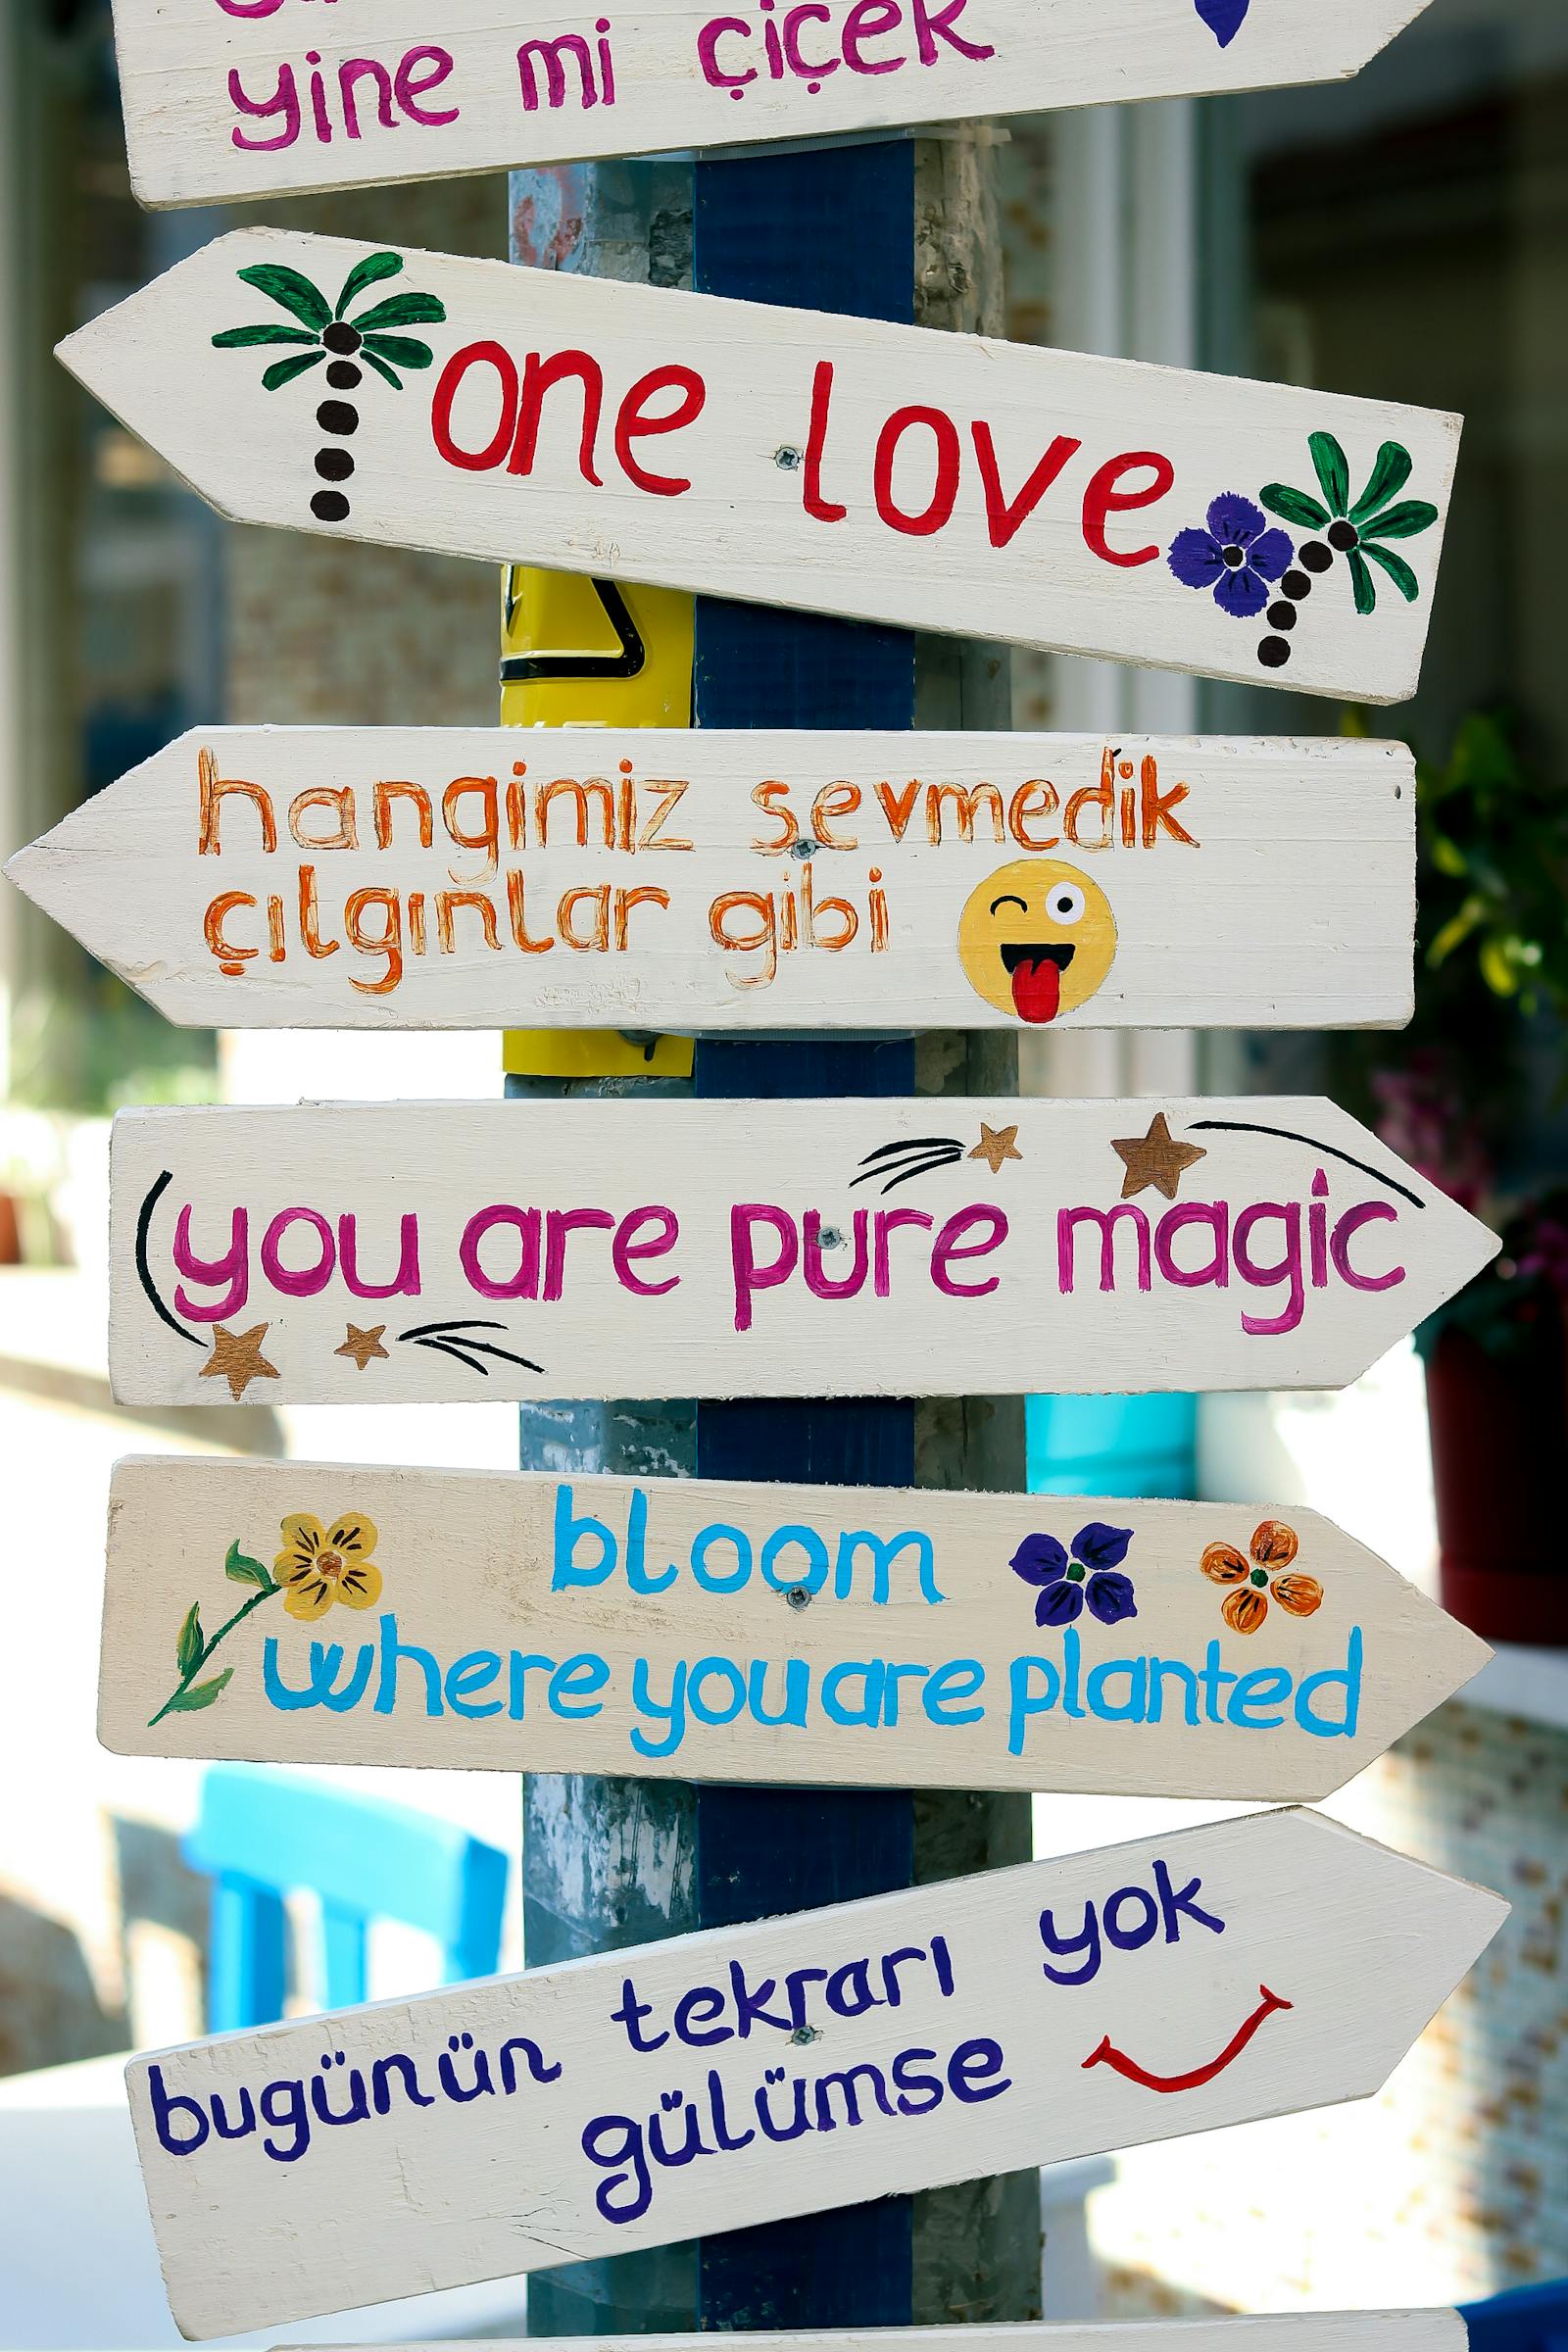 yine mi çiçek
one love
hangimiz sevmedik
çılgınlar gibi
you are pure magic
bloom
where you are planted
bugünün tekrarı yok
gülümse